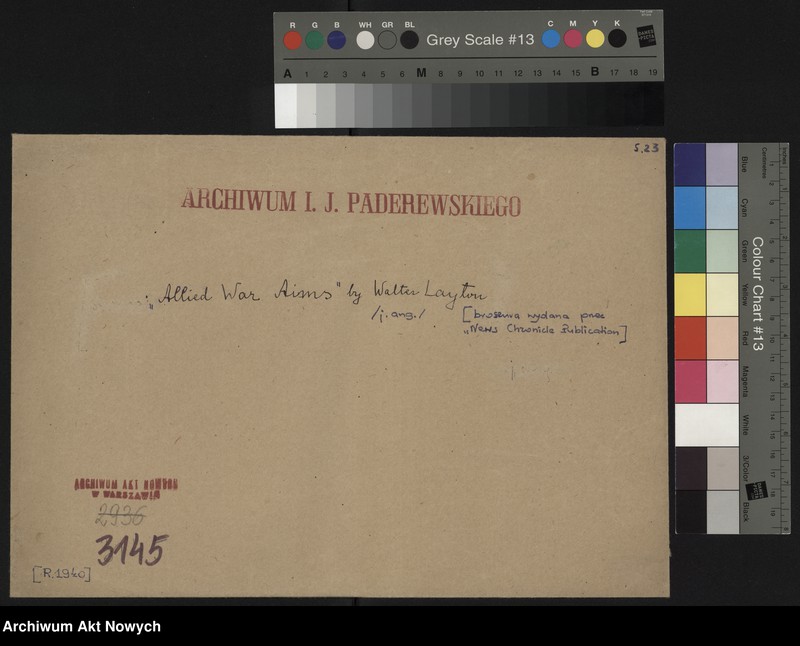 R G B WH GR BL Grey Scale #13 C M Y K
A 1 2 3 4 5 6 M 8 9 10 11 12 13 14 15 B 17 18 19
S.23
ARCHIWUM I. J. PADEREWSKIEGO
„Allied War Aims" by Walter Layton
/j. ang./ [broszura wydana przez
„News Chronicle Publication]
ARCHIWUM AKT NOWYCH
W WARSZAWIE
2936
3145
[R.1940]
Colour Chart #13
Blue
Cyan
Green
Yellow
Red
Magenta
White
3/Color
Black
Centimetres
Inches
Archiwum Akt Nowych